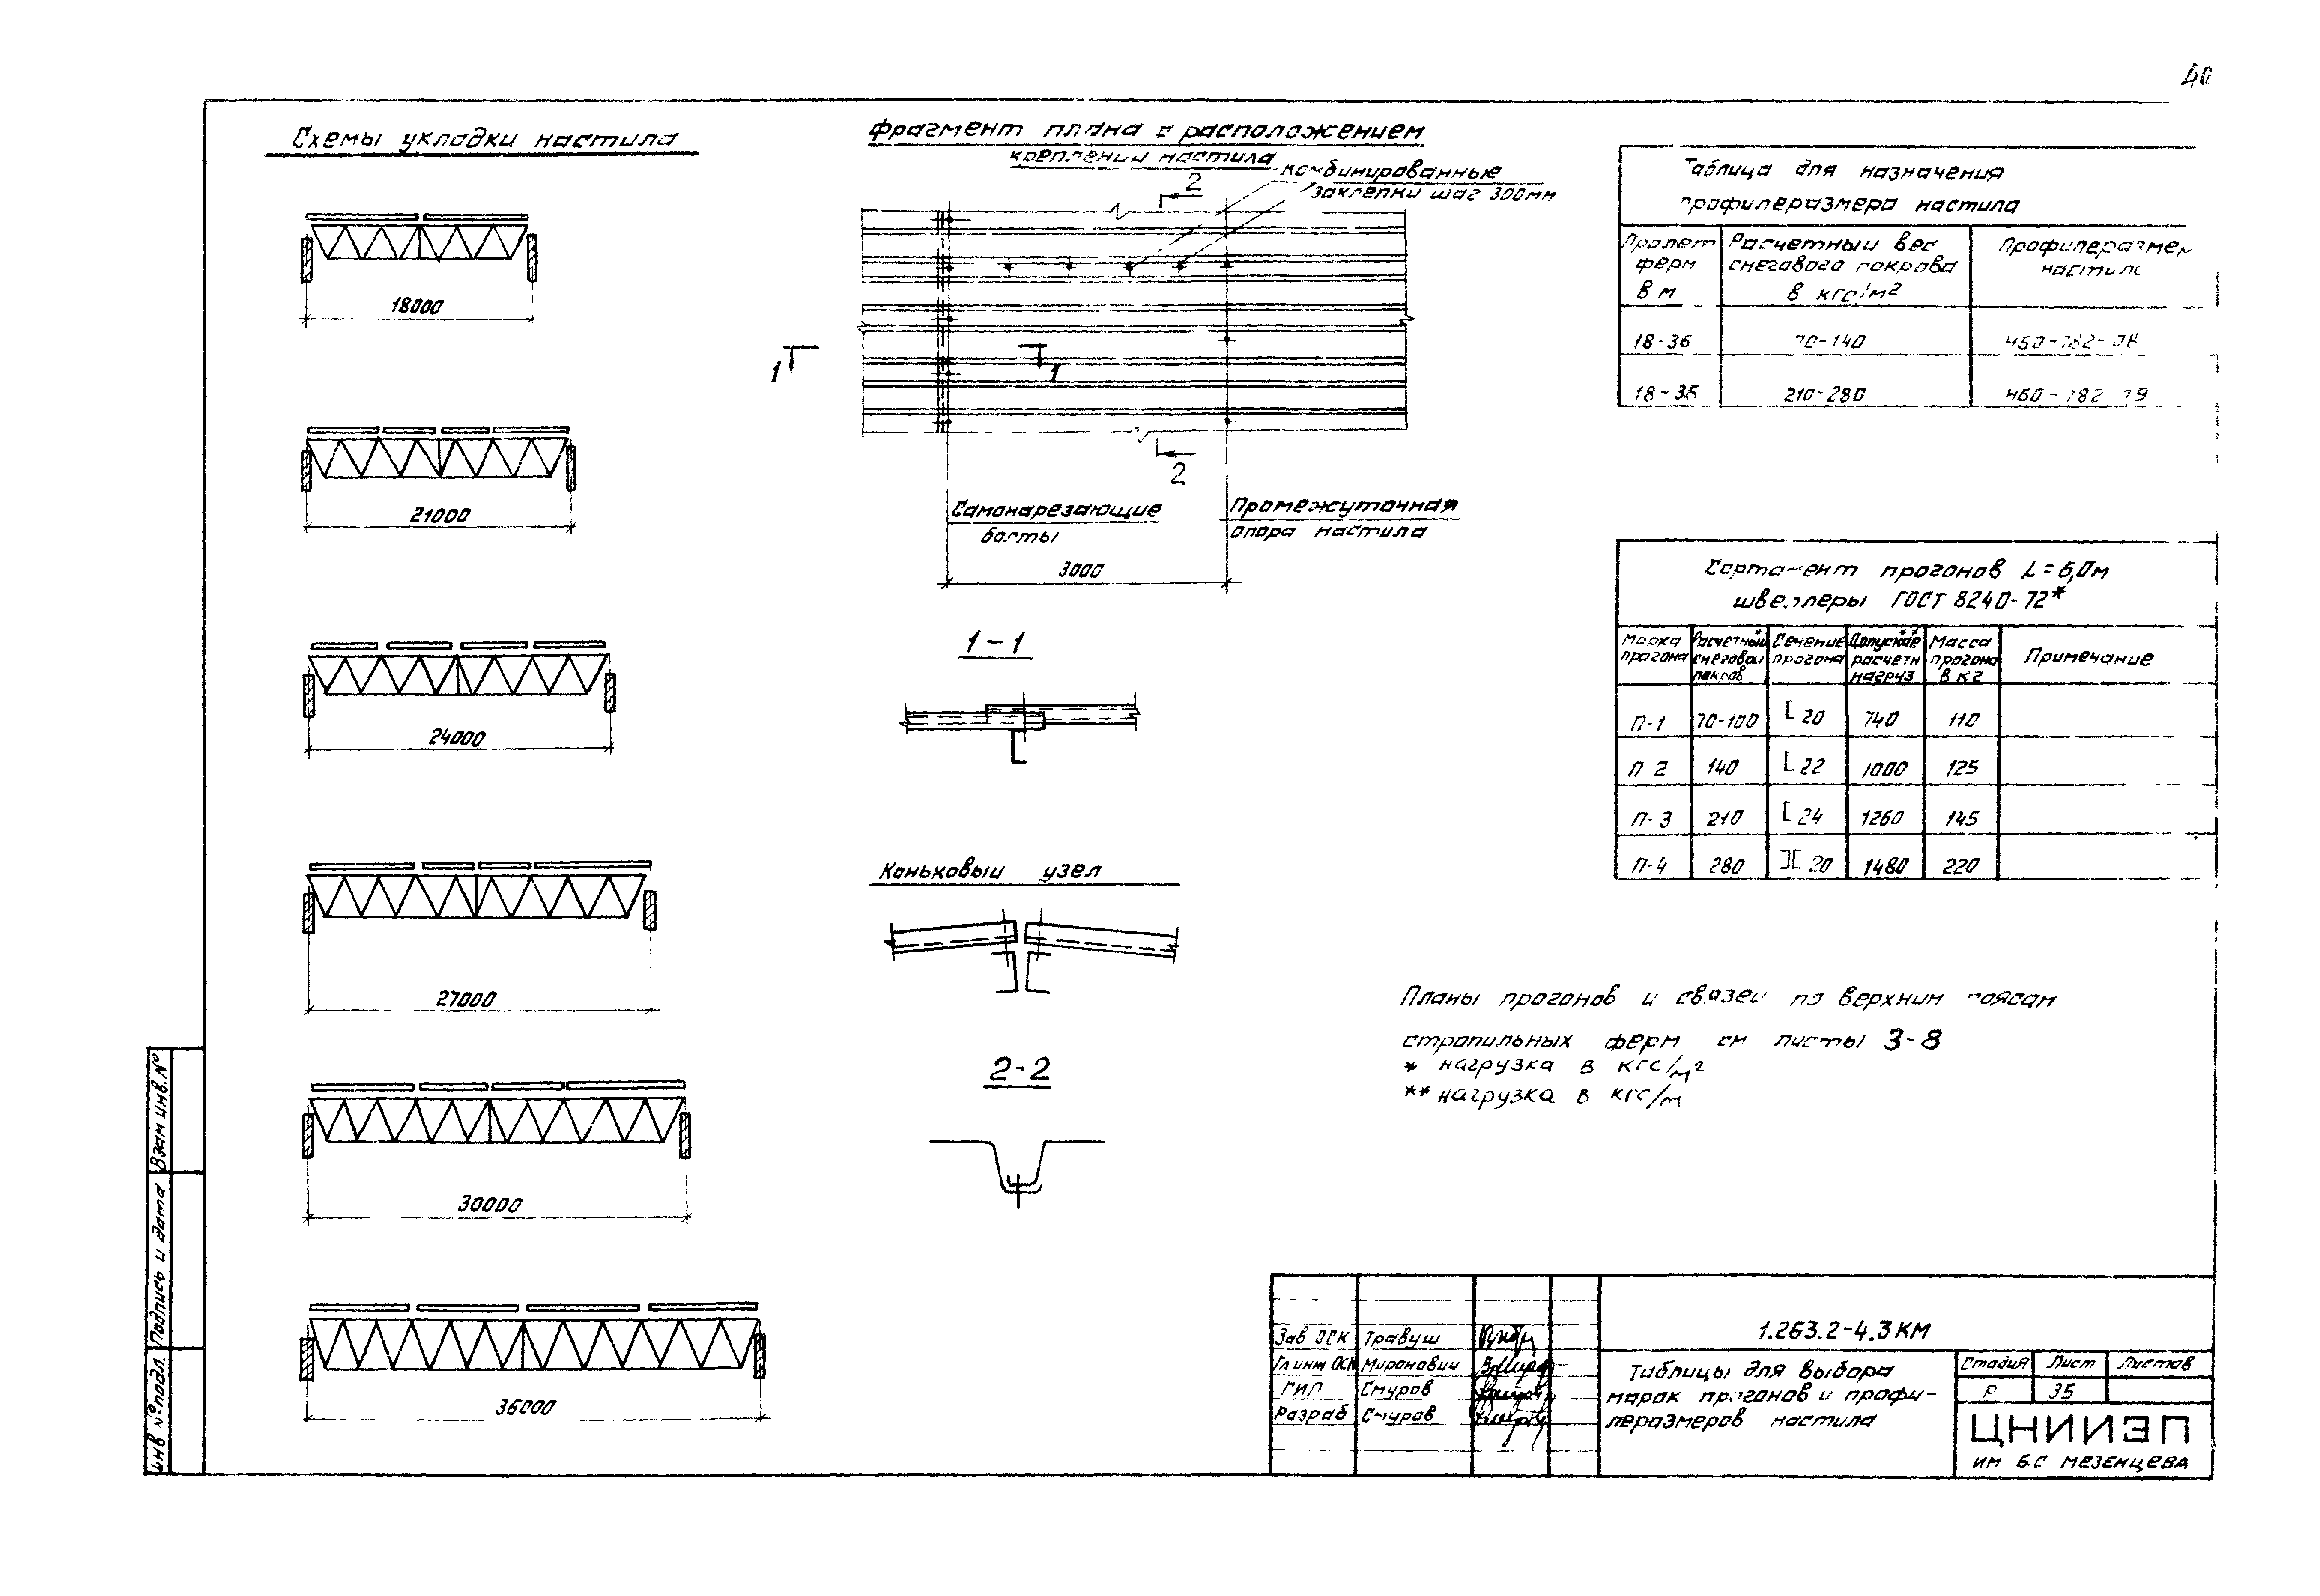 40
Схемы укладки настила
18000
21000
24000
27000
30000
36000
Фрагмент плана с расположением
креплений настила
комбинированные
заклепки шаг 300мм
2
1
1
2
Самонарезающие
болты
Промежуточная
опора настила
3000
1-1
Коньковый узел
2-2
Таблица для назначения
профилеразмера настила
Пролет ферм в м
Расчетный вес снегового покрова в кгс/м²
Профилеразмер настила
18-36 70-140 Н60-782-08
18-36 210-280 Н60-782-
Сортамент прогонов L=6,0м
швеллеры ГОСТ 8240-72*
Марка прогона
Расчетный* снеговой покров
Сечение прогона
Допускае** расчетн нагруз
Масса прогона в кг
Примечание
П-1 70-100 [ 20 740 110
П 2 140 [ 22 1000 125
П-3 210 [ 24 1260 145
П-4 280 ][ 20 1480 220
Планы прогонов и связей по верхним поясам
стропильных ферм см листы 3-8
* нагрузка в кгс/м²
** нагрузка в кгс/м
Взам инв.№
Подпись и дата
Инв №подл.
Зав ОСК Травуш
Гл инж ОСК Миронович
ГИП Смуров
Разраб Смуров
1.263.2-4.3 КМ
Таблицы для выбора
марок прогонов и профи-
леразмеров настила
Стадия Лист Листов
Р 35
ЦНИИЭП
им Б.С Мезенцева